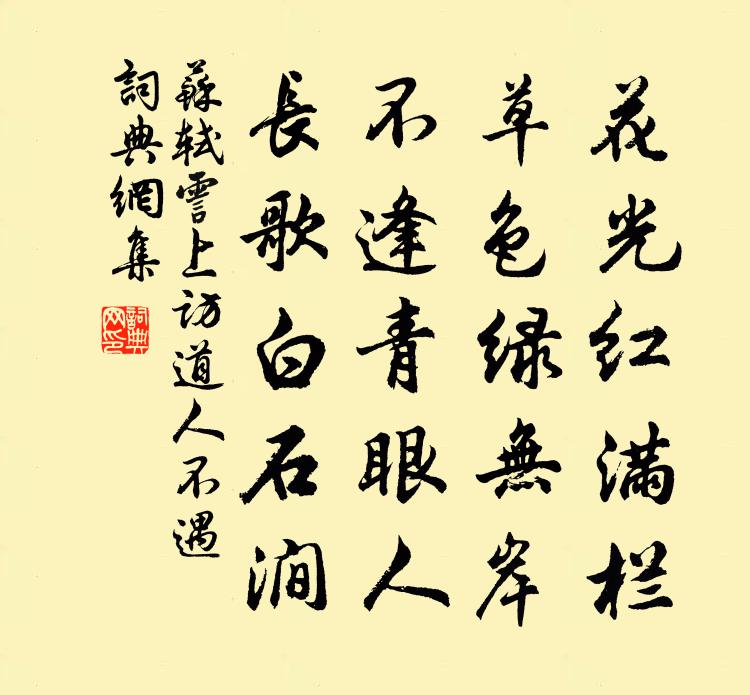 花光红满栏
草色绿無岸
不逢青眼人
長歌白石澗
蘇軾雪上訪道人不遇
詞典網集
詞典網印